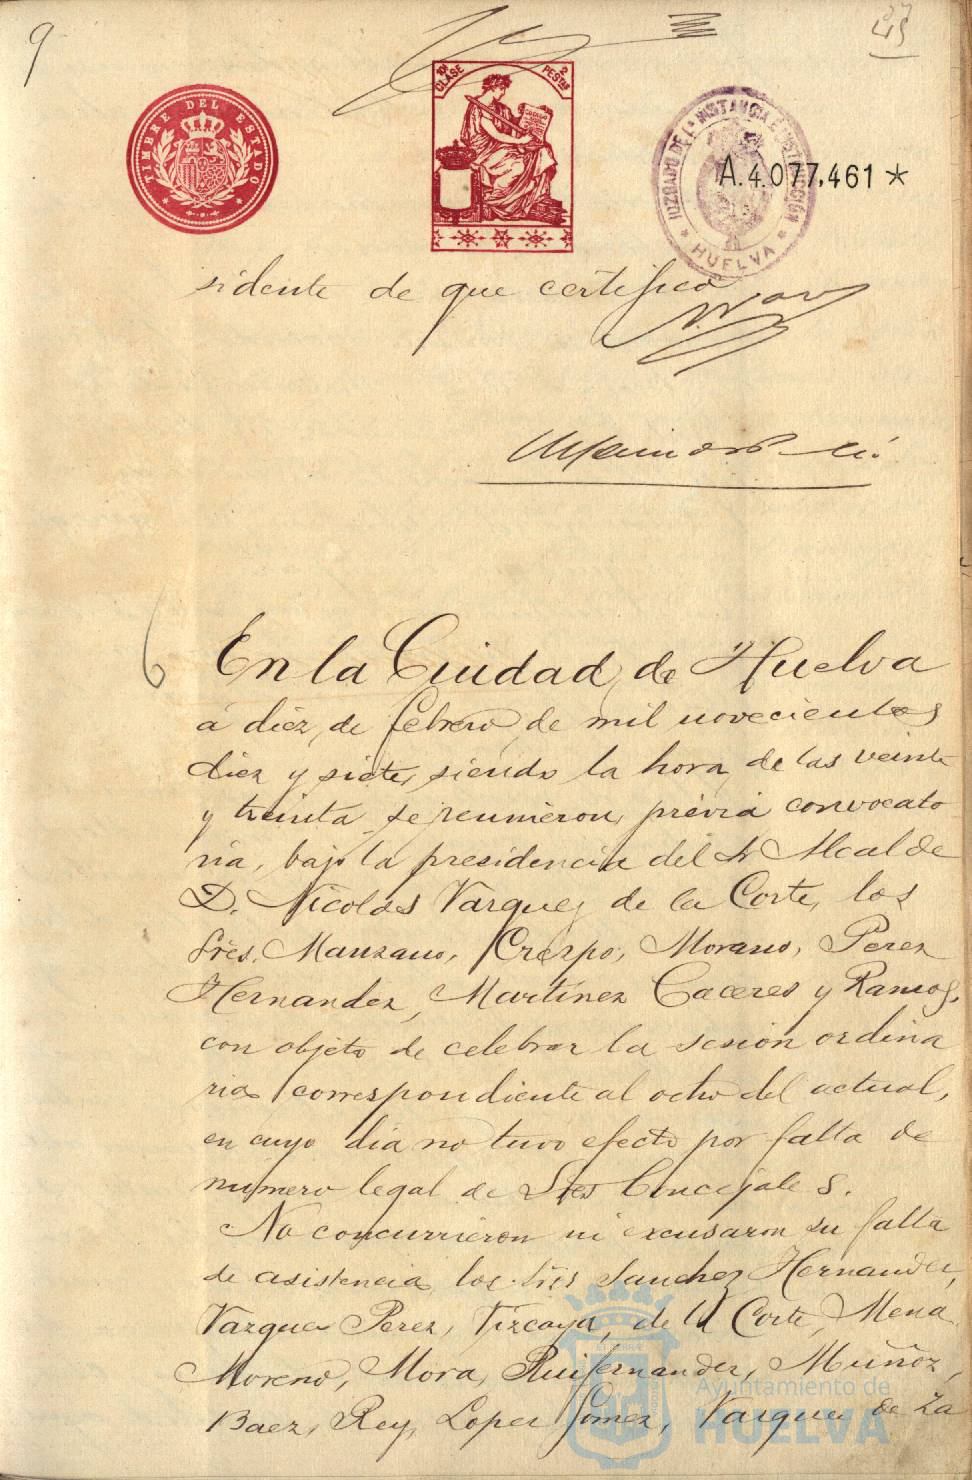 9
45
TIMBRE DEL ESTADO
10ª CLASE
2 PESTAS
JUZGADO DE 1ª INSTANCIA E INSTRUCCIÓN
* HUELVA *
A.4.077,461 *
sidente de que certifico
6
En la Ciudad de Huelva
á diez de febrero de mil novecientos
diez y siete, siendo la hora de las veinte
y treinta se reunieron, prévia convocato
ria, bajo la presidencia del Sr Alcalde
D. Nicolás Vazquez de la Corte, los
Sres. Manzano, Crespo, Morano, Perez
Hernandez, Martínez Caceres y Ramos,
con objeto de celebrar la sesión ordina
ria correspondiente al ocho del actual,
en cuyo día no tuvo efecto por falta de
número legal de Sres Concejales.
No concurrieron ni excusaron su falta
de asistencia los Sres Sanchez Hernandez,
Vazquez Perez, Vizcaya, de la Corte, Mena
Moreno, Mora, Ruifernandez, Muñoz,
Baez, Rey, Lopez Gomez, Vazquez de Za
Ayuntamiento de
HUELVA